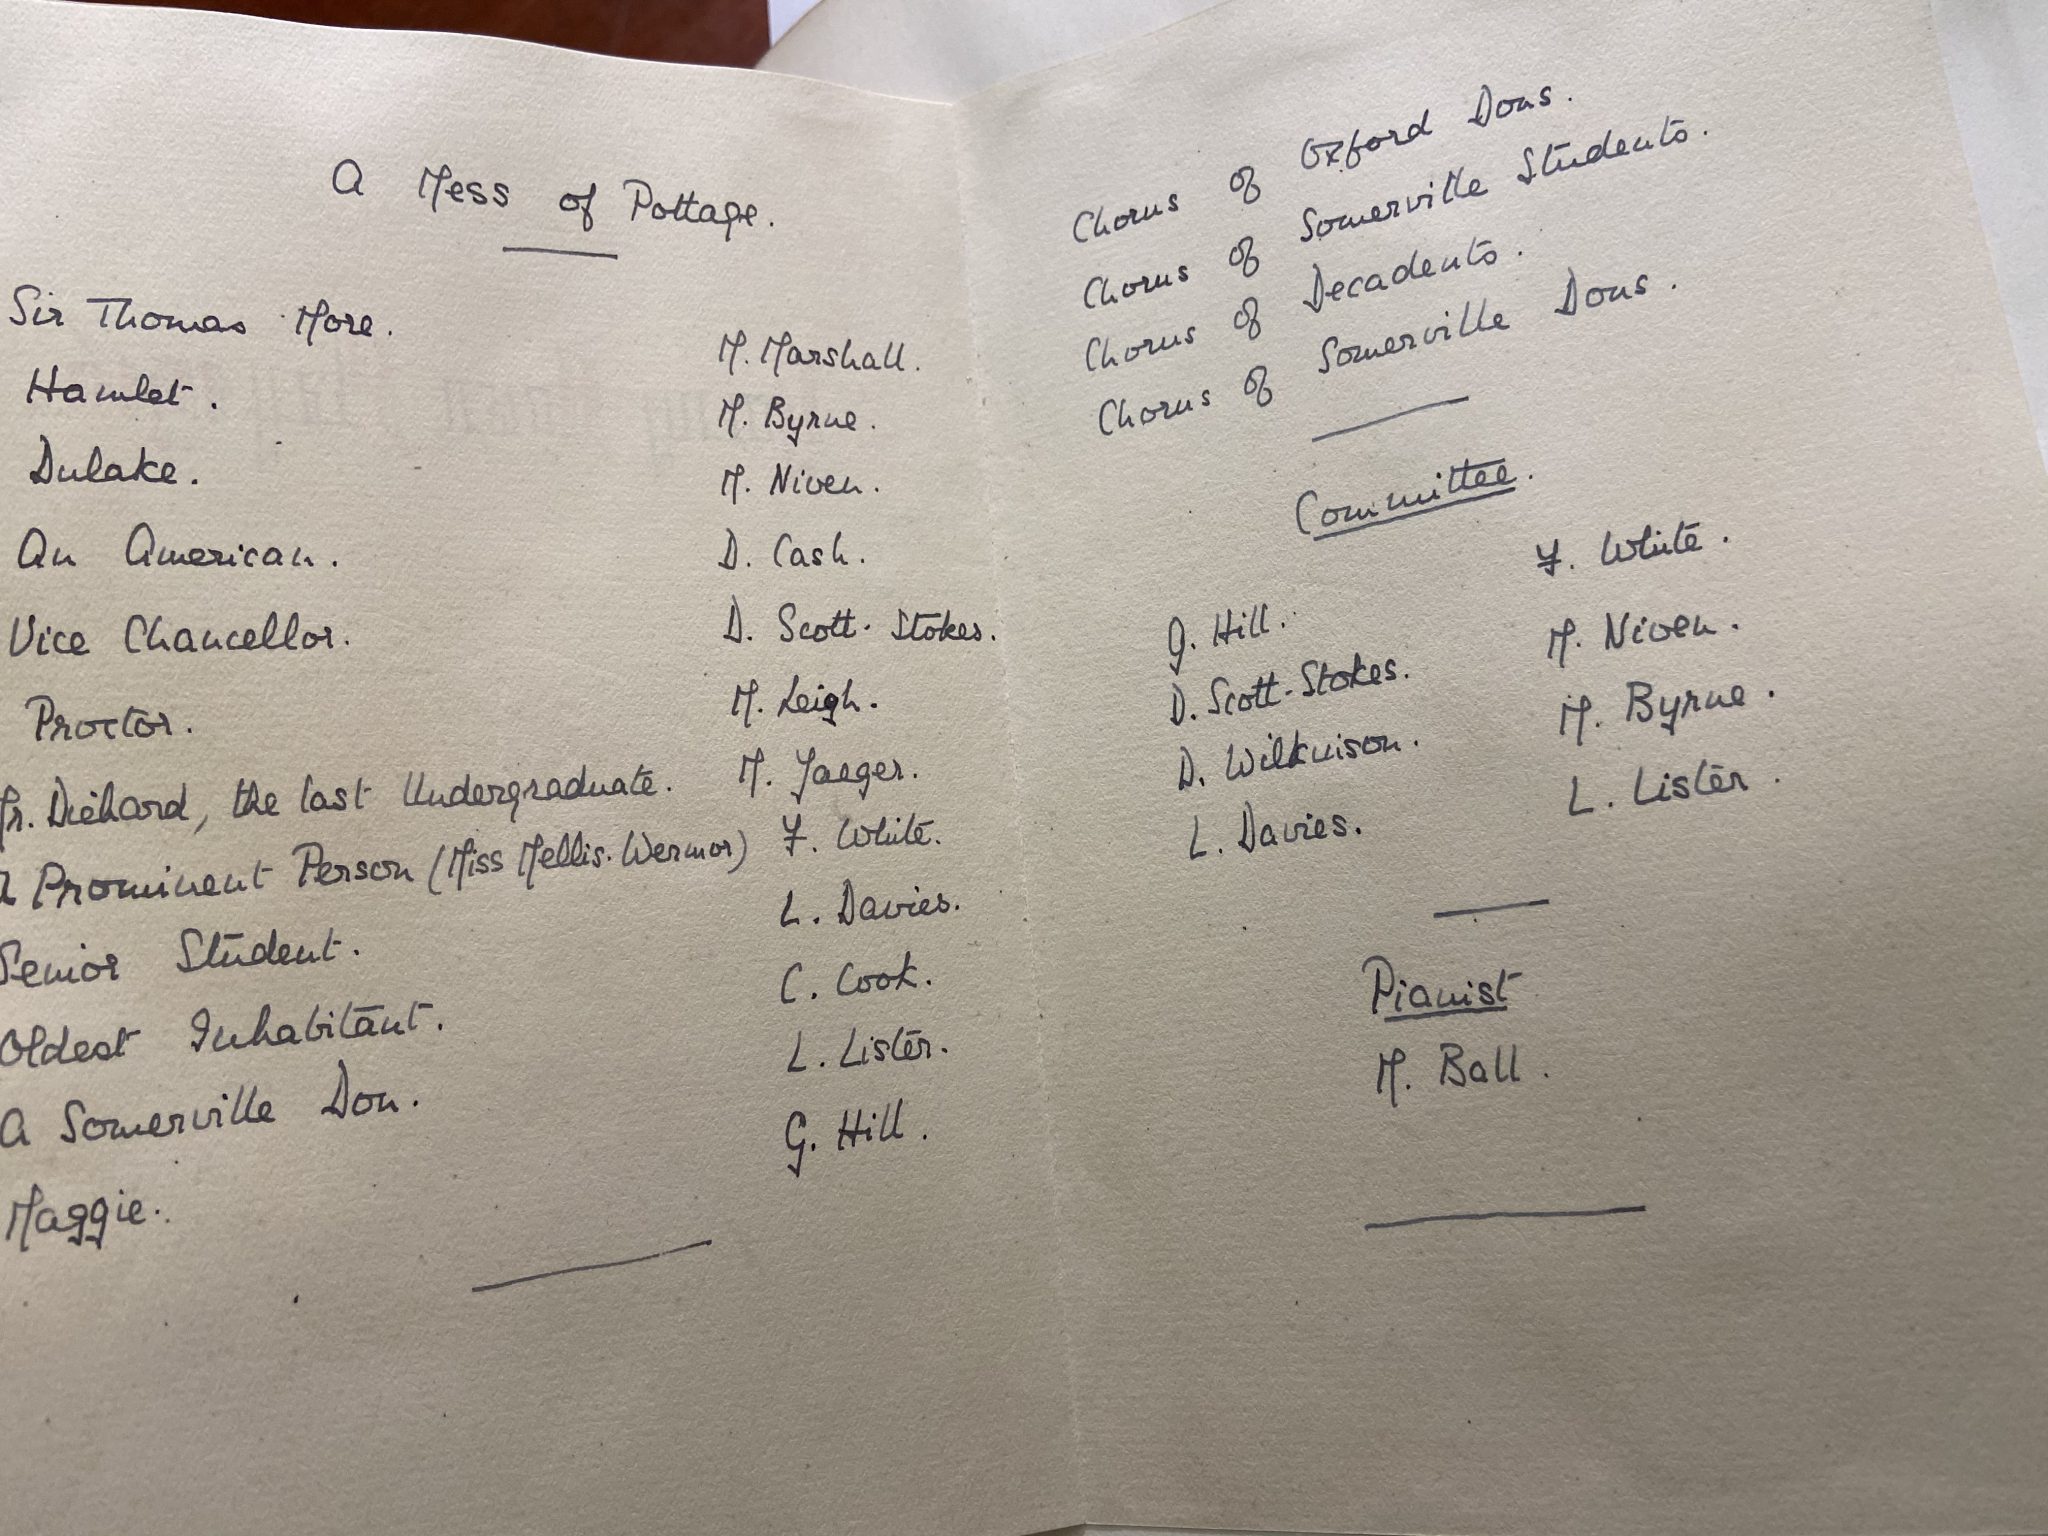 A Mess of Pottage.
Sir Thomas More. M. Marshall.
Hamlet. M. Byrne.
Dulake. M. Niven.
An American. D. Cash.
Vice Chancellor. D. Scott-Stokes.
Proctor. M. Leigh.
Mr. Diehard, the last Undergraduate. M. Jaeger.
A Prominent Person (Miss Mellis-Wermor) F. White.
Senior Student. L. Davies.
Oldest Inhabitant. C. Cook.
A Somerville Don. L. Lister.
Maggie. G. Hill.
Chorus of Oxford Dons.
Chorus of Somerville Students.
Chorus of Decadents.
Chorus of Somerville Dons.
Committee.
G. Hill. F. White.
D. Scott-Stokes. M. Niven.
D. Wilkinson. M. Byrne.
L. Davies. L. Lister.
Pianist
M. Ball.